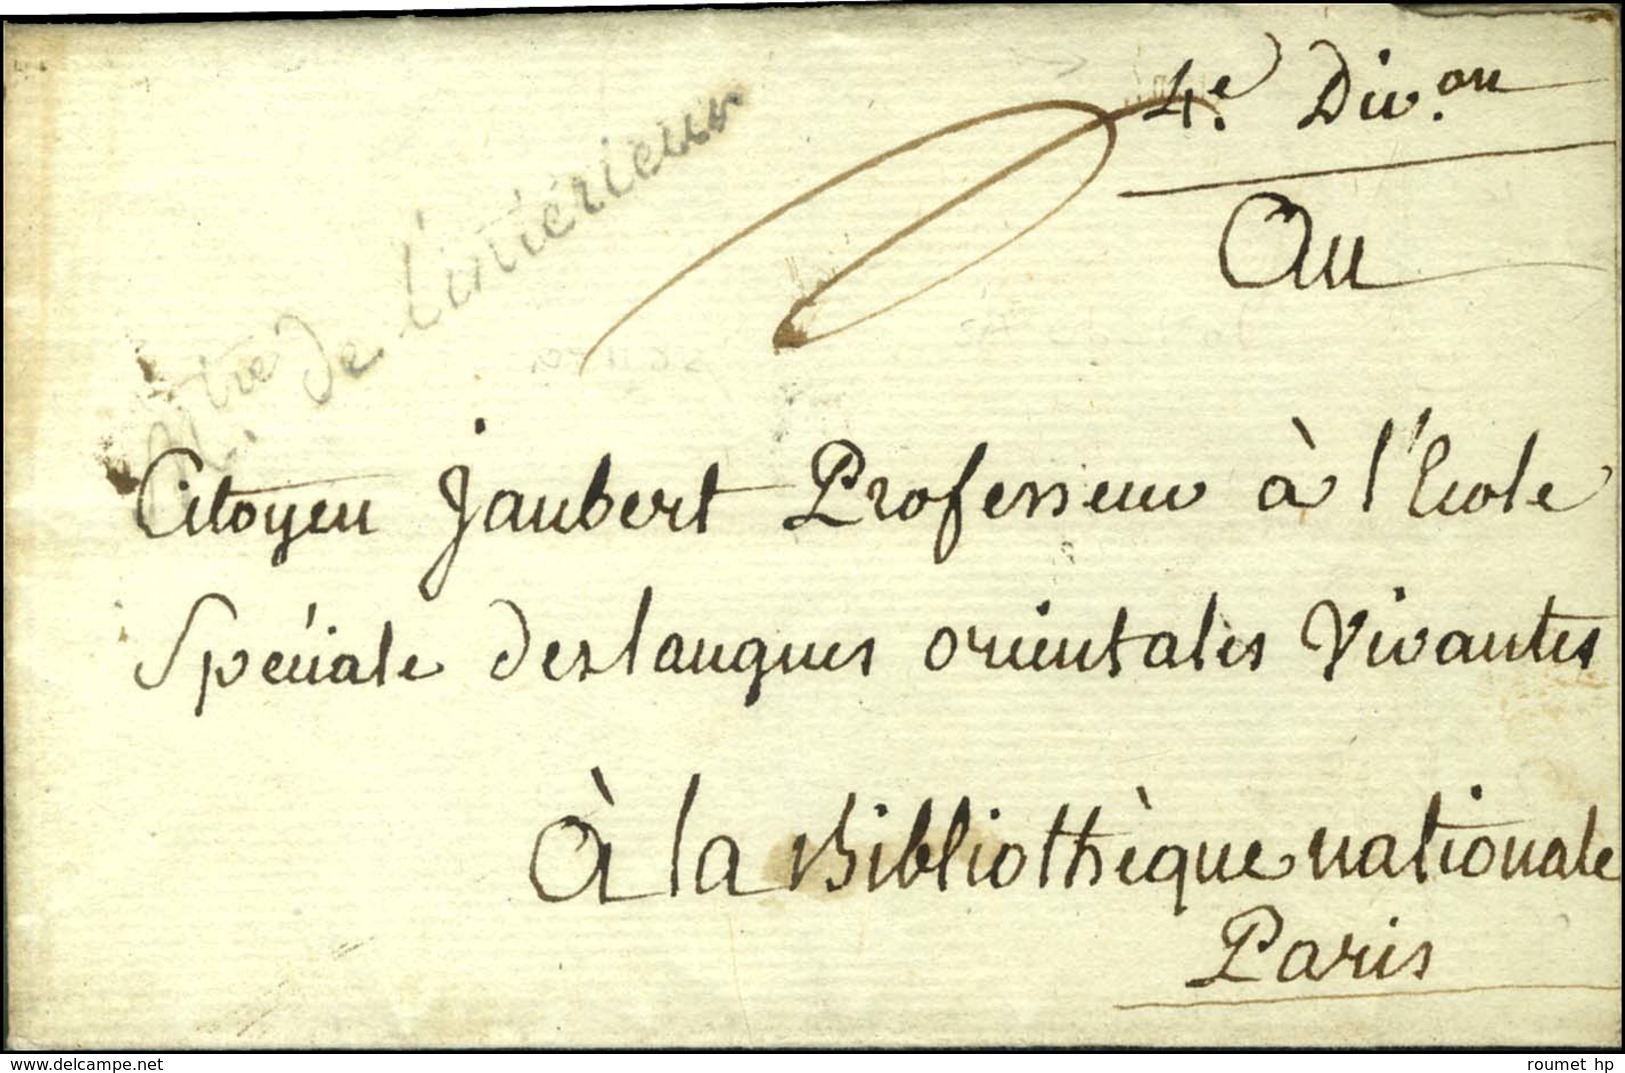 4e. Div.on
Au
M.tre de l'intérieur
Citoyen Jaubert Professeur à l'Ecole
Spéciale des langues orientales Vivantes
À la Bibliothèque nationale
Paris
delcampe.net
roumet hp